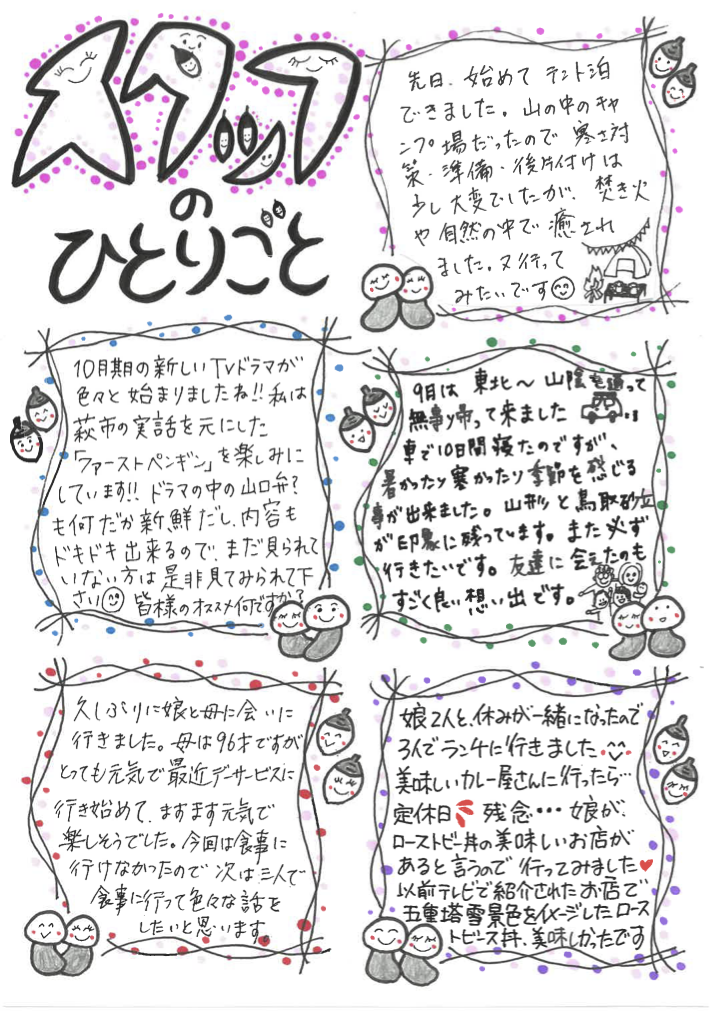 スタッフ
の
ひとりごと
先日、始めて テント泊
できました。山の中のキャ
ンプ場だったので 寒さ対
策・準備・後片付けは
少し大変でしたが、焚き火
や自然の中で癒され
ました。又行って
みたいです
10月期の新しいTVドラマが
色々と始まりましたね!!私は
萩市の実話を元にした
「ファーストペンギン」を楽しみに
しています!!ドラマの中の山口弁?
も何だか新鮮だし、内容も
ドキドキ出来るので、まだ見られて
いない方は是非見てみられて下
さい 皆様のオススメ何ですか?
9月は 東北〜山陰を通って
無事り帰って来ました
車で10日間寝たのですが、
暑かったり寒かったり季節を感じる
事が出来ました。山形りと鳥取砂丘
が印象に残っています。また必ず
行きたいです。友達に会えたのも
すごく良い想い出です。
久しぶりに娘と母に会いに
行きました。母は96才ですが
とっても元気で最近デーサービスに
行き始めて、ますます元気で
楽しそうでした。今回は食事に
行けなかったので次は三人で
食事に行って色々な話を
したいと思います。
娘2人と、休みが一緒になったので
3人でランチに行きました
美味しいカレー屋さんに行ったら…
定休日 残念・・・娘が、
ローストビー丼の美味しいお店が
あると言うので行ってみました♥
以前テレビで紹介されたお店で
五重塔雪景色をイメージしたロース
トビース丼、美味しかったです